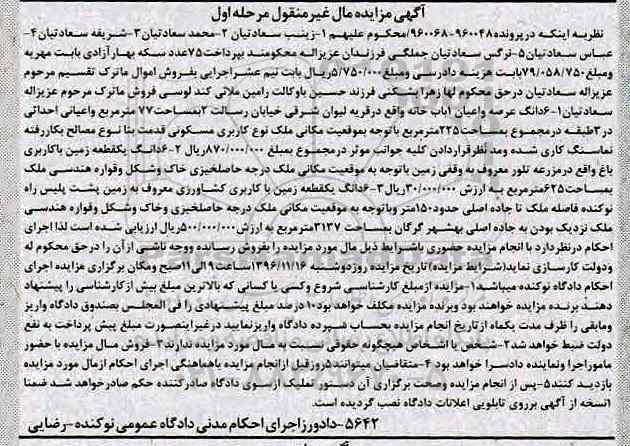 آگهی مزایده مال غیر منقول مرحله اول
نظربه اینکه درپرونده ۹۶۰۰۴۸-۹۶۰۰۶۸/محکوم علیهم ۱-زینب سعادتیان ۲-محمد سعادتیان۳-شریفه سعادتیان۴-
عباس سعادتیان۵-نرگس سعادتیان جملگی فرزندان عزیزاله محکومند بپرداخت۷۵عدد سکه بهارآزادی بابت مهریه
ومبلغ۷۹/۰۵۸/۷۵۰بابت هزینه دادرسی ومبلغ۵/۷۵۰/۰۰۰ریال بابت نیم عشراجرایی بفروش اموال ماترک تقسیم مرحوم
عزیزاله سعادتیان درحق محکوم لها زهرا یشکنی فرزند حسین باوکالت رامین ملائی کند لوسی فروش ماترک مرحوم عزیزاله
سعادتیان۱-۶دانگ عرصه واعیان ۱باب خانه واقع درقریه لیوان شرقی خیابان رسالت ۲بمساحت۷۷ مترمربع واعیانی احداثی
در۳طبقه درمجموع بمساحت۲۲۵مترمربع باتوجه بموقعیت مکانی ملک نوع کاربری مسکونی قدمت بنا نوع مصالح بکاررفته
نماسنگ کاری شده ومد نظرقراردادن کلیه جوانب موثر درمجموع بمبلغ ۸۷۰/۰۰۰/۰۰۰ریال ۲-۶دانگ یکقطعه زمین باکاربری
باغ واقع درمزرعه تلور معروف به وقفی زمین باتوجه به موقعیت مکانی ملک درجه حاصلخیزی خاک وشکل وقواره هندسی ملک
بمساحت۶۲۵مترمربع به ارزش ۳۰/۰۰۰/۰۰۰ریال۳-۶دانگ یکقطعه زمین با کاربری کشاورزی معروف به زمین پشت پلیس راه
نوکنده فاصله ملک تا جاده اصلی حدود۱۵۰متر وباتوجه به موقعیت مکانی ملک درجه حاصلخیزی وخاک وشکل وقواره هندسی
ملک نزدیک بودن به جاده اصلی بهشهر گرگان بمساحت ۳۱۳۷مترمربع به ارزش۵۰۰/۰۰۰/۰۰۰ریال ارزیابی شده است لذا اجرای
احکام درنظردارد با انجام مزایده حضوری باشرایط ذیل مال مورد مزایده را بفروش رسانده ووجه ناشی ازآن را درحق محکوم له
ودولت کارسازی نماید(شرایط مزایده)تاریخ مزایده روزدوشنبه ۱۳۹۶/۱۱/۱۶ساعت۹الی۱۱صبح ومکان برگزاری مزایده اجرای
احکام دادگاه نوکنده میباشد۱-مزایده ازمبلغ کارشناسی شروع وکسی یا کسانی که بالاترین مبلغ بیش ازکارشناسی را پیشنهاد
دهند برنده مزایده خواهند بود وبرنده مزایده مکلف خواهد بود۱۰درصد مبلغ پیشنهادی را فی المجلس بصندوق دادگاه واریز
ومابقی را ظرف مدت یکماه ازتاریخ انجام مزایده بحساب سپرده دادگاه واریزنمایید درغیراینصورت مبلغ پیش پرداخت به نفع
دولت ضبط خواهد شد۲-شخص یا اشخاص هیچگونه حقوقی نسبت به مال مورد مزایده ندارند۳-فروش مال مزایده با حضور
ماموراجرا ونماینده دادسرا خواهد بود ۴-متقاضیان میتوانند۵روزقبل ازانجام مزایده باهماهنگی اجرای احکام ازمال مورد مزایده
بازدید کنند۵-پس از انجام مزایده وصحت برگزاری آن دستور تملیک ازسوی دادگاه صادرکننده حکم صادرخواهد شد ضمنا
۱نسخه از آگهی برروی تابلویی اعلانات دادگاه نصب گردیده است.
۵۶۴۲-دادورزاجرای احکام مدنی دادگاه عمومی نوکنده-رضایی